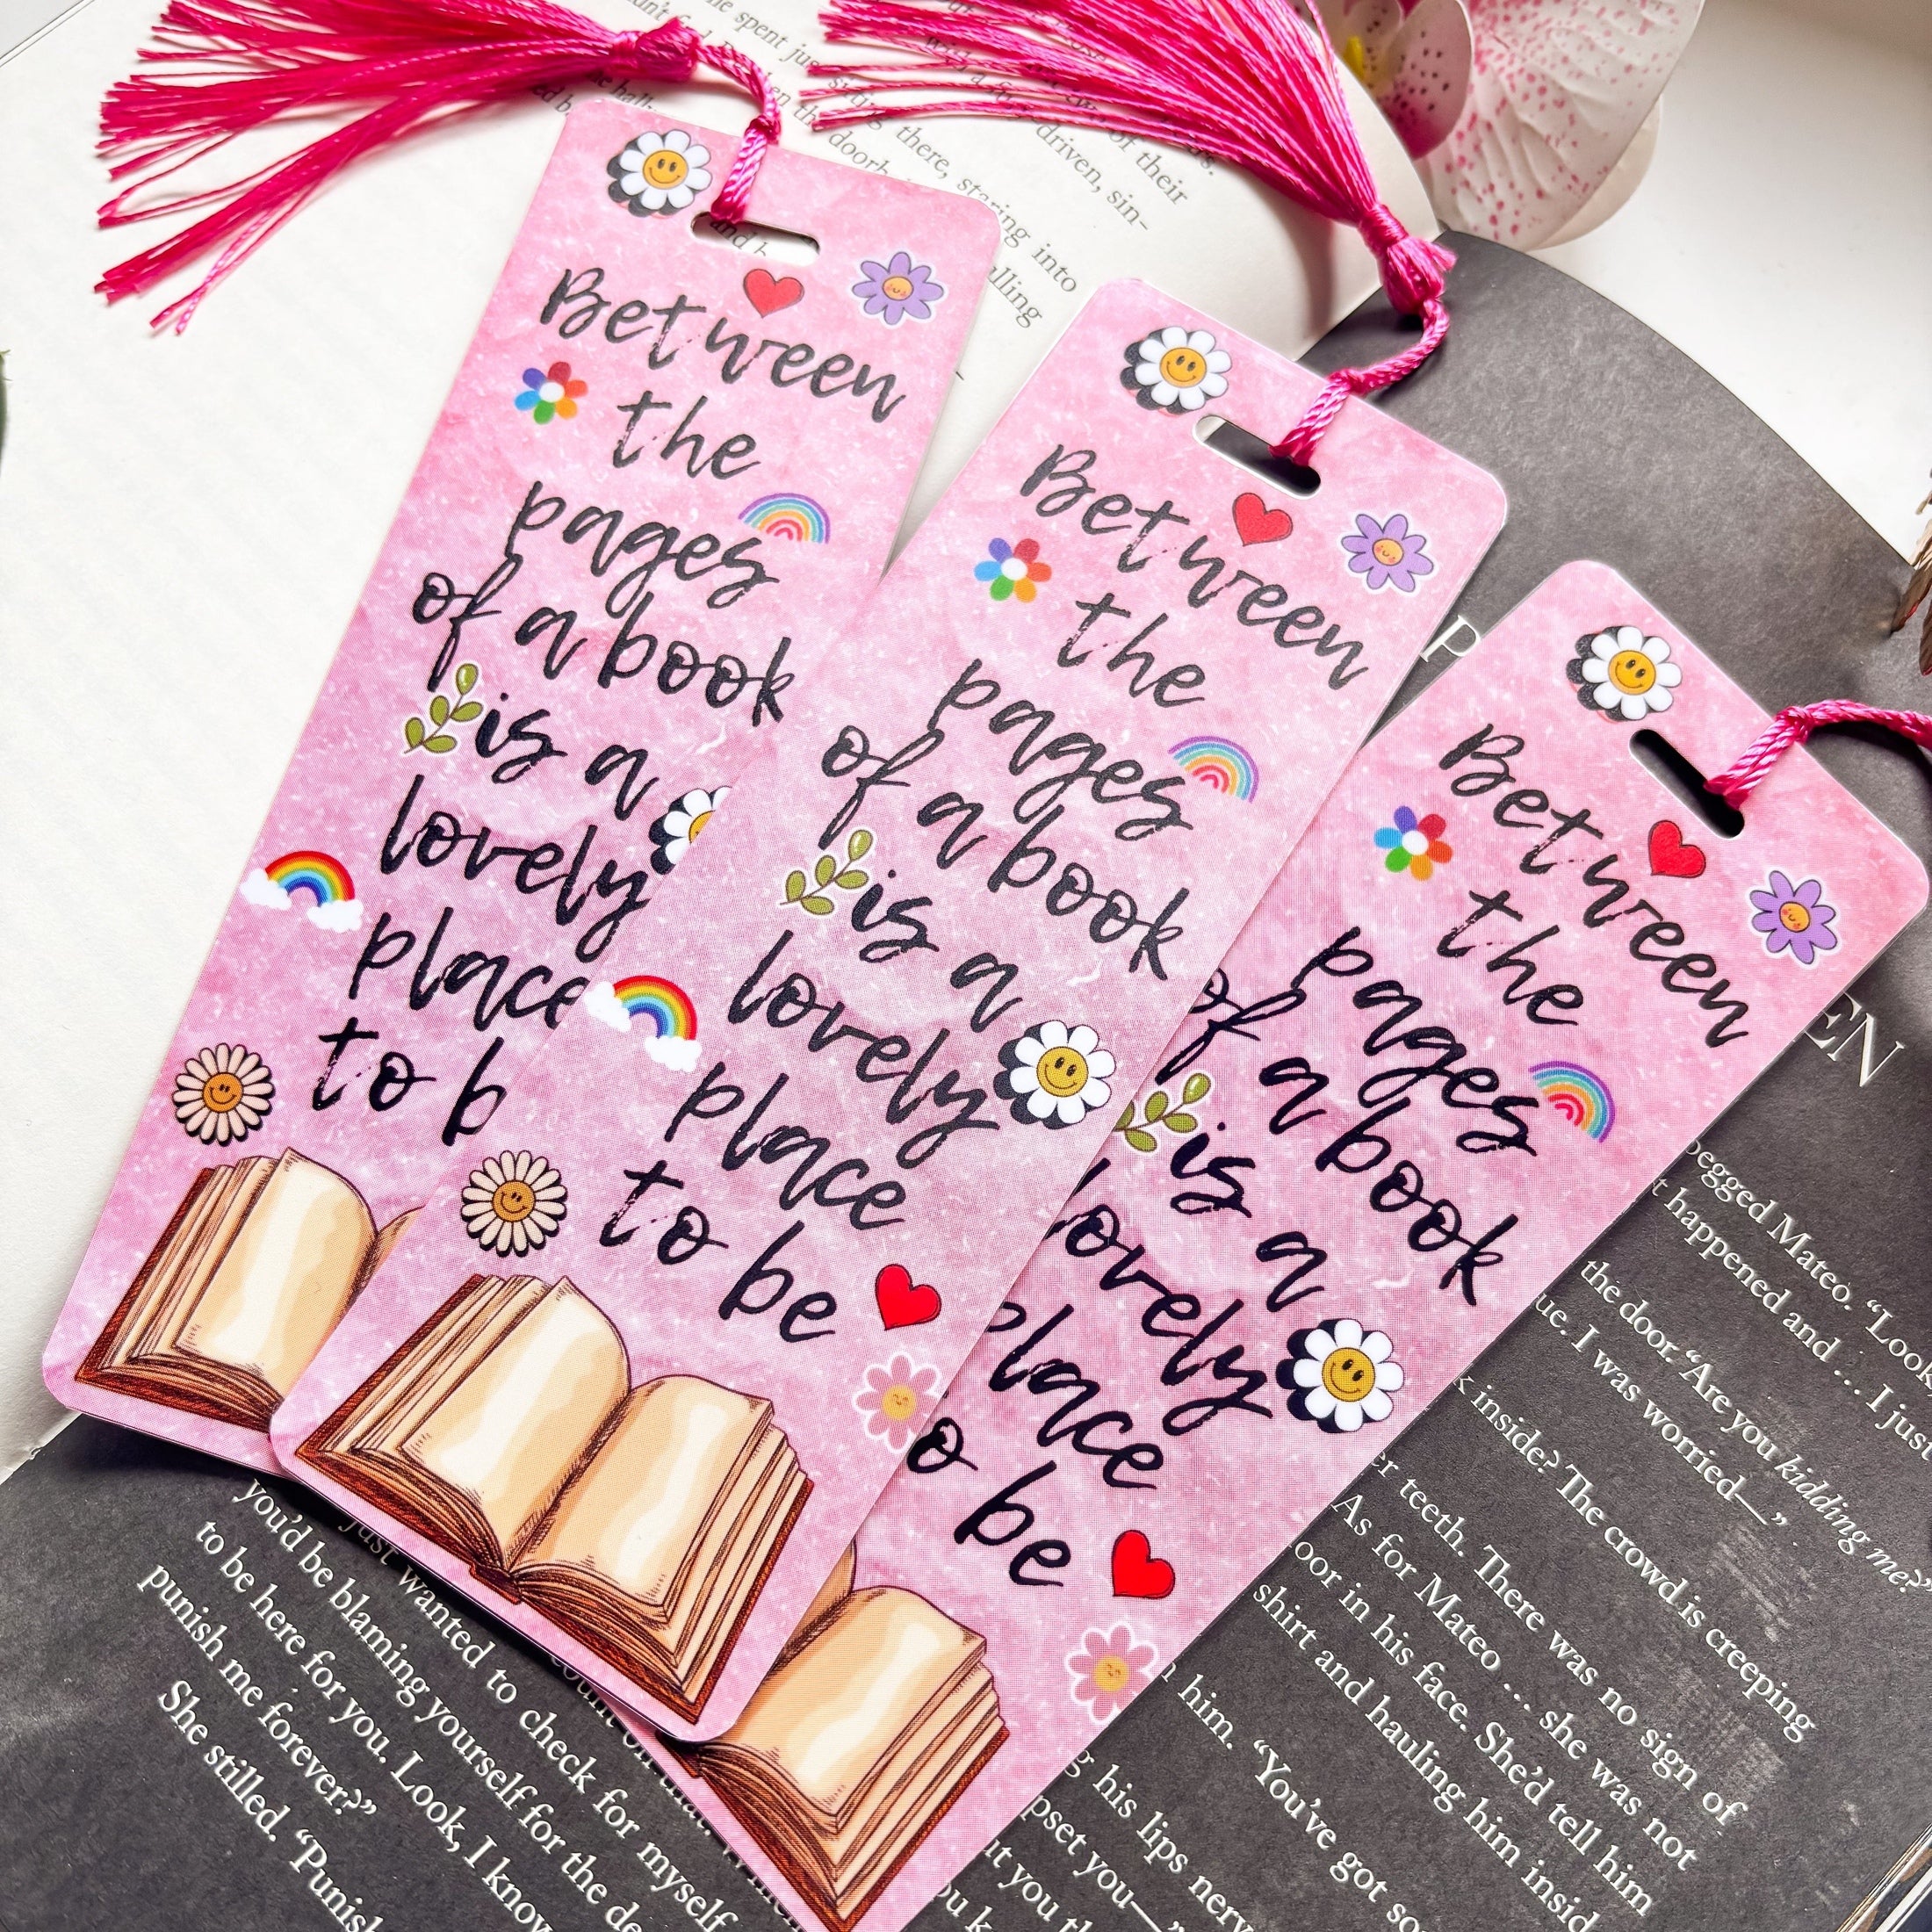 he spent just
sitting there, staring into
the doorb
and h
driven, sin-
of their
Between
the
pages
of a book
is a
lovely
place
to b
Between
the
pages
of a book
is a
lovely
place
to be
Between
the
pages
of a book
is a
lovely
place
o be
P
EN
begged Mateo. “Look
t happened and … I just
the door. “Are you kidding me?”
ue. I was worried—”
k inside? The crowd is creeping
er teeth. There was no sign of
As for Mateo … she was not
oor in his face. She’d tell him
shirt and hauling him insid
n him. “You’ve got so
g his lips nerv
pset you—”
ut you th
ou k
just wanted to check for myself
you’d be blaming yourself for the de
to be here for you. Look, I know
punish me forever?”
She stilled. “Punish